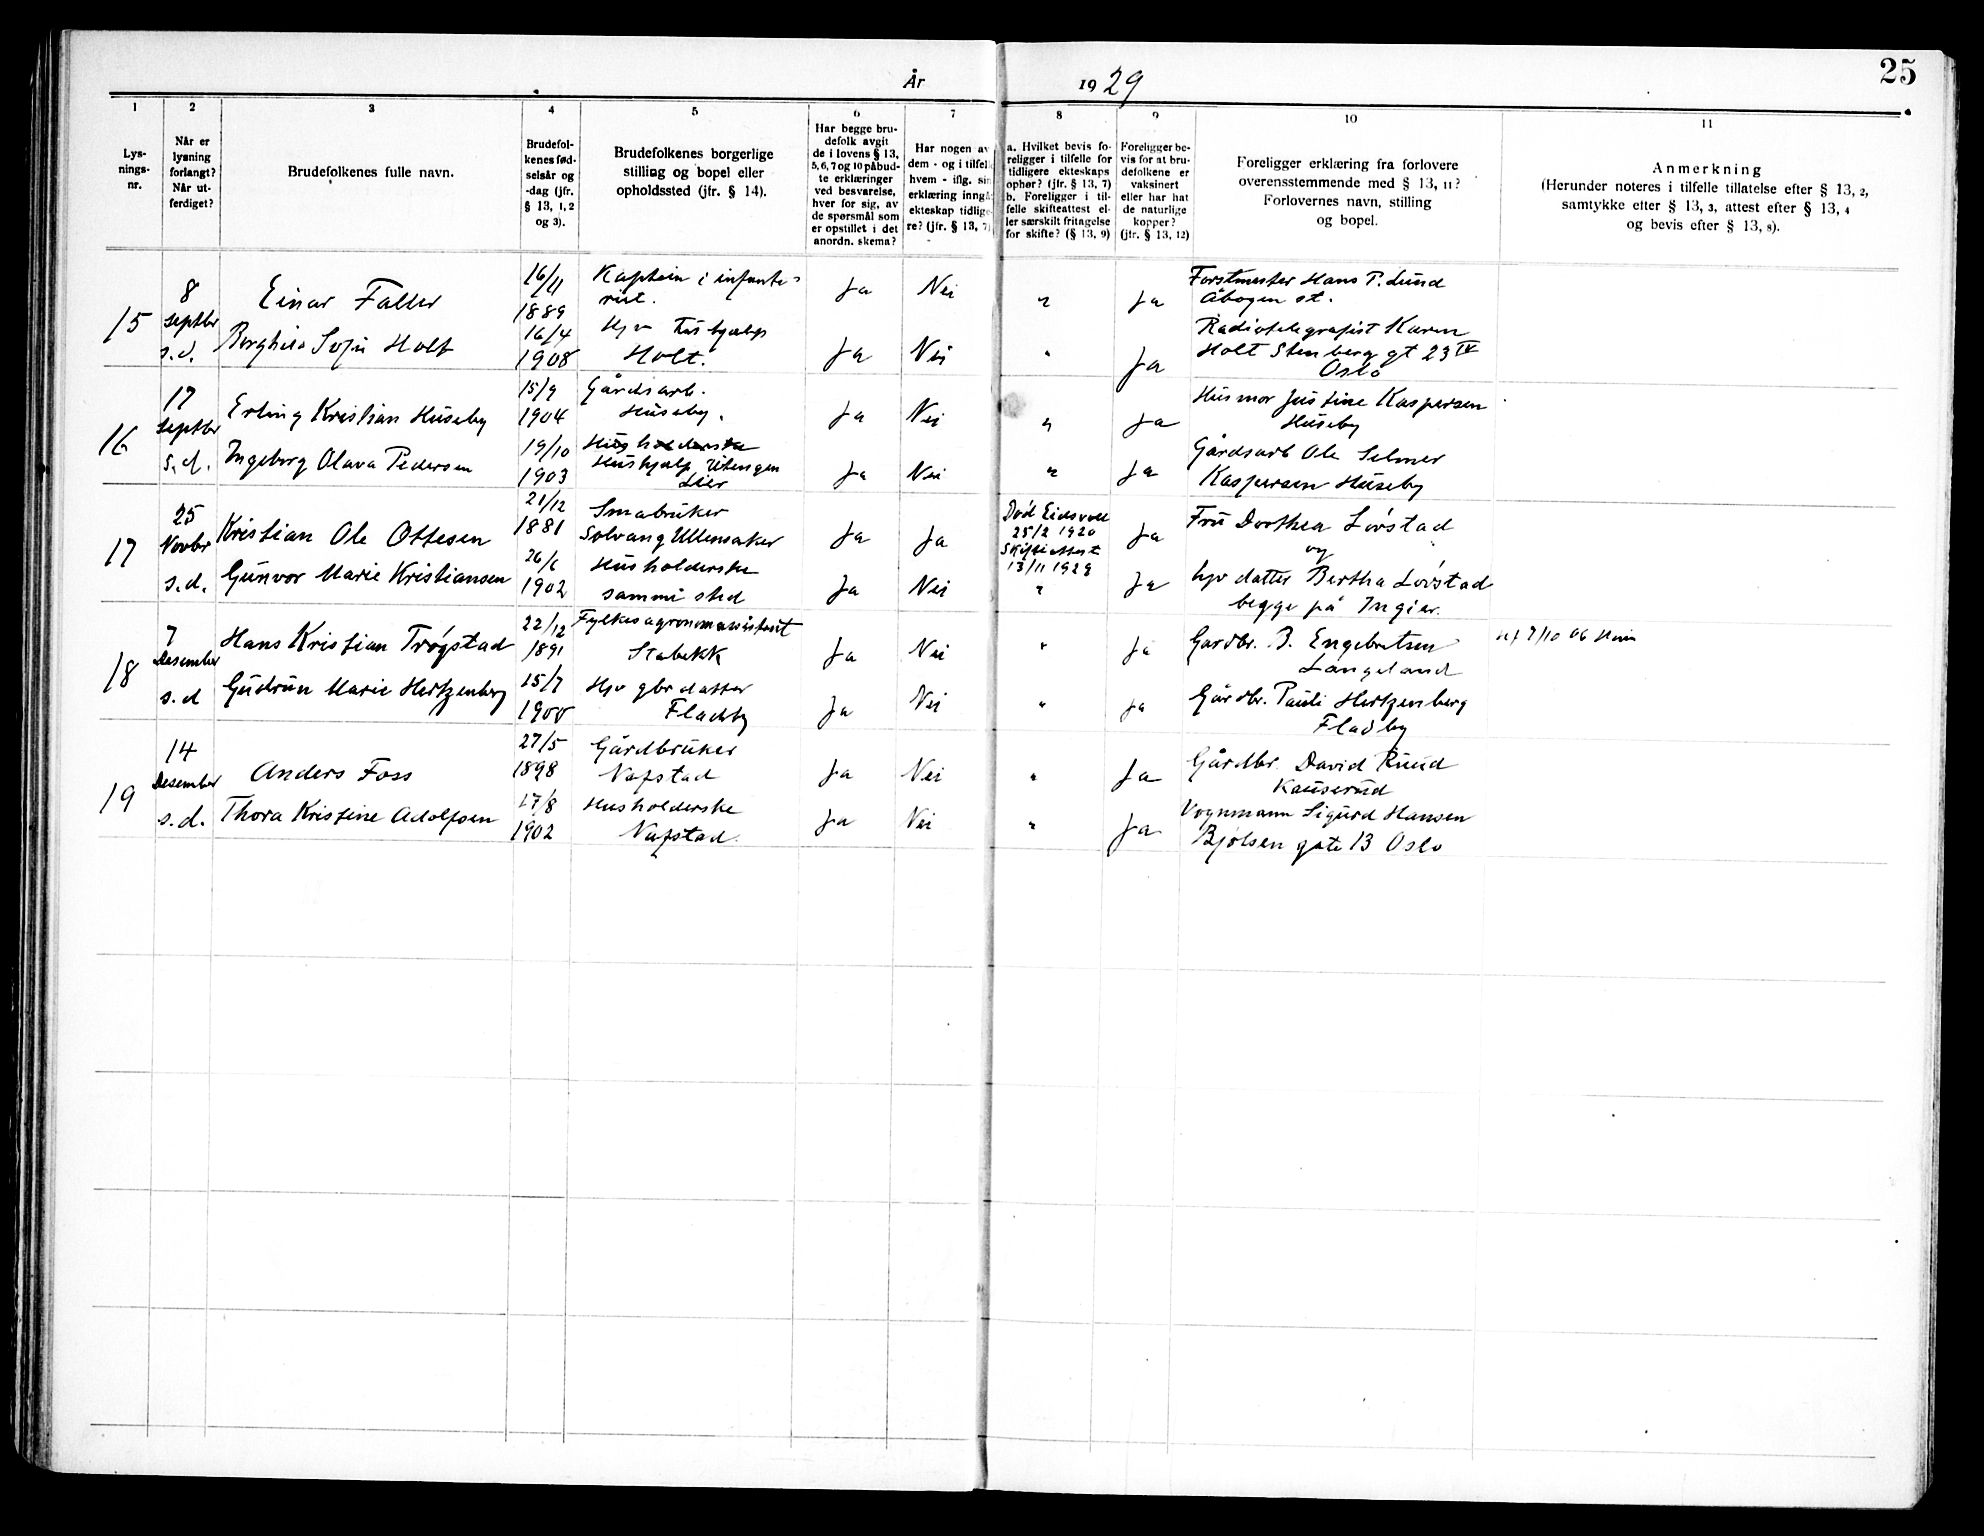 År 1929
25
1
2
3
4
5
6
7
8
9
10
11
Lys-
nings-
nr.
Når er
lysning
forlangt?
Når ut-
ferdiget?
Brudefolkenes fulle navn.
Brudefol-
kenes fød-
selsår og
-dag (jfr.
§ 13, 1, 2
og 3).
Brudefolkenes borgerlige
stilling og bopel eller
opholdssted (jfr. § 14).
Har begge bru-
defolk avgit
de i lovens § 13,
5, 6, 7 og 10 påbud-
te erklæringer
ved besvarelse,
hver for sig, av
de spørsmål som
er opstillet i det
anordn. skema?
Har nogen av
dem - og i tilfel
hvem - iflg. sin
erklæring inngå
ekteskap tidlige-
re? (jfr. § 13, 7)
a. Hvilket bevis fo-
religger i tilfelle for
tidligere ekteskaps
ophør? (jfr. § 13, 7)
b. Foreligger i til-
felle skifteattest el-
ler særskilt fritagelse
for skifte? (§ 13, 9)
Foreligger be-
vis for at bru-
defolkene er
vaksinert
eller har hat
de naturlige
kopper?
(jfr. § 13, 12)
Foreligger erklæring fra forlovere
overensstemmende med § 13, 11?
Forlovernes navn, stilling
og bopel.
Anmerkning
(Herunder noteres i tilfelle tillatelse efter § 13, 2,
samtykke efter § 13, 3, attest efter § 13, 4
og bevis efter § 13, 8).
15
8
Septbr
s.d.
Einar Faller
16/11
1889
Kaptein i infante-
riet.
Ja
Nei
"
Ja
Forstmester Hans P. Lund
Åbogen st.
Borghild Sofie Holt
16/4
1908
Hjv Hushjælp
Holt.
Ja
Nei
"
Ja
Radiotelegrafist Karen
Holt Stenberg gt 23 IV
Oslo
16
17
Septbr
s.d.
Erling Kristian Huseby
15/9
1904
Gårdsarb.
Huseby.
Ja
Nei
"
Ja
Husmor Justine Kaspersen
Huseby
Ingeborg Olava Pedersen
19/10
1903
Husholderske
Hushjælp Utengen
Lier
Ja
Nei
"
Ja
Gårdsarb Ole Selmer
Kaspersen Huseby
17
25
Novbr
s.d.
Kristian Ole Ottesen
21/12
1881
Småbruker
Solvang Ullensaker
Ja
Ja
Død Eidsvoll
25/2 1920
Skifteattest
13/11 1929
Ja
Fru Dorthea Lovstad
og
Gunvor Marie Kristiansen
26/6
1902
Husholderske
samme sted
Ja
Nei
"
Ja
hjv datter Bertha Lovstad
begge på Ingier.
18
7
Desember
s.d
Hans Kristian Trøgstad
22/12
1891
Fylkesagronomassistent
Stabekk
Ja
Nei
"
Ja
Gardbr. B. Engebretsen
Langeland
7/10 06
Gudrun Marie Hertzenberg
15/7
1900
Hjv gbr datter
Fladby
Ja
Nei
"
Ja
Gårdbr. Pauli Hertzenberg
Fladby
19
14
Desember
s.d.
Anders Foss
27/5
1898
Gårdbruker
Nafstad
Ja
Nei
"
Ja
Gårdbr. David Ruud
Kauserud
Thora Kristine Adolfsen
17/8
1902
Husholderske
Nafstad.
Ja
Nei
"
Ja
Vognmann Sigurd Hansen
Bjølsen gate 13 Oslo